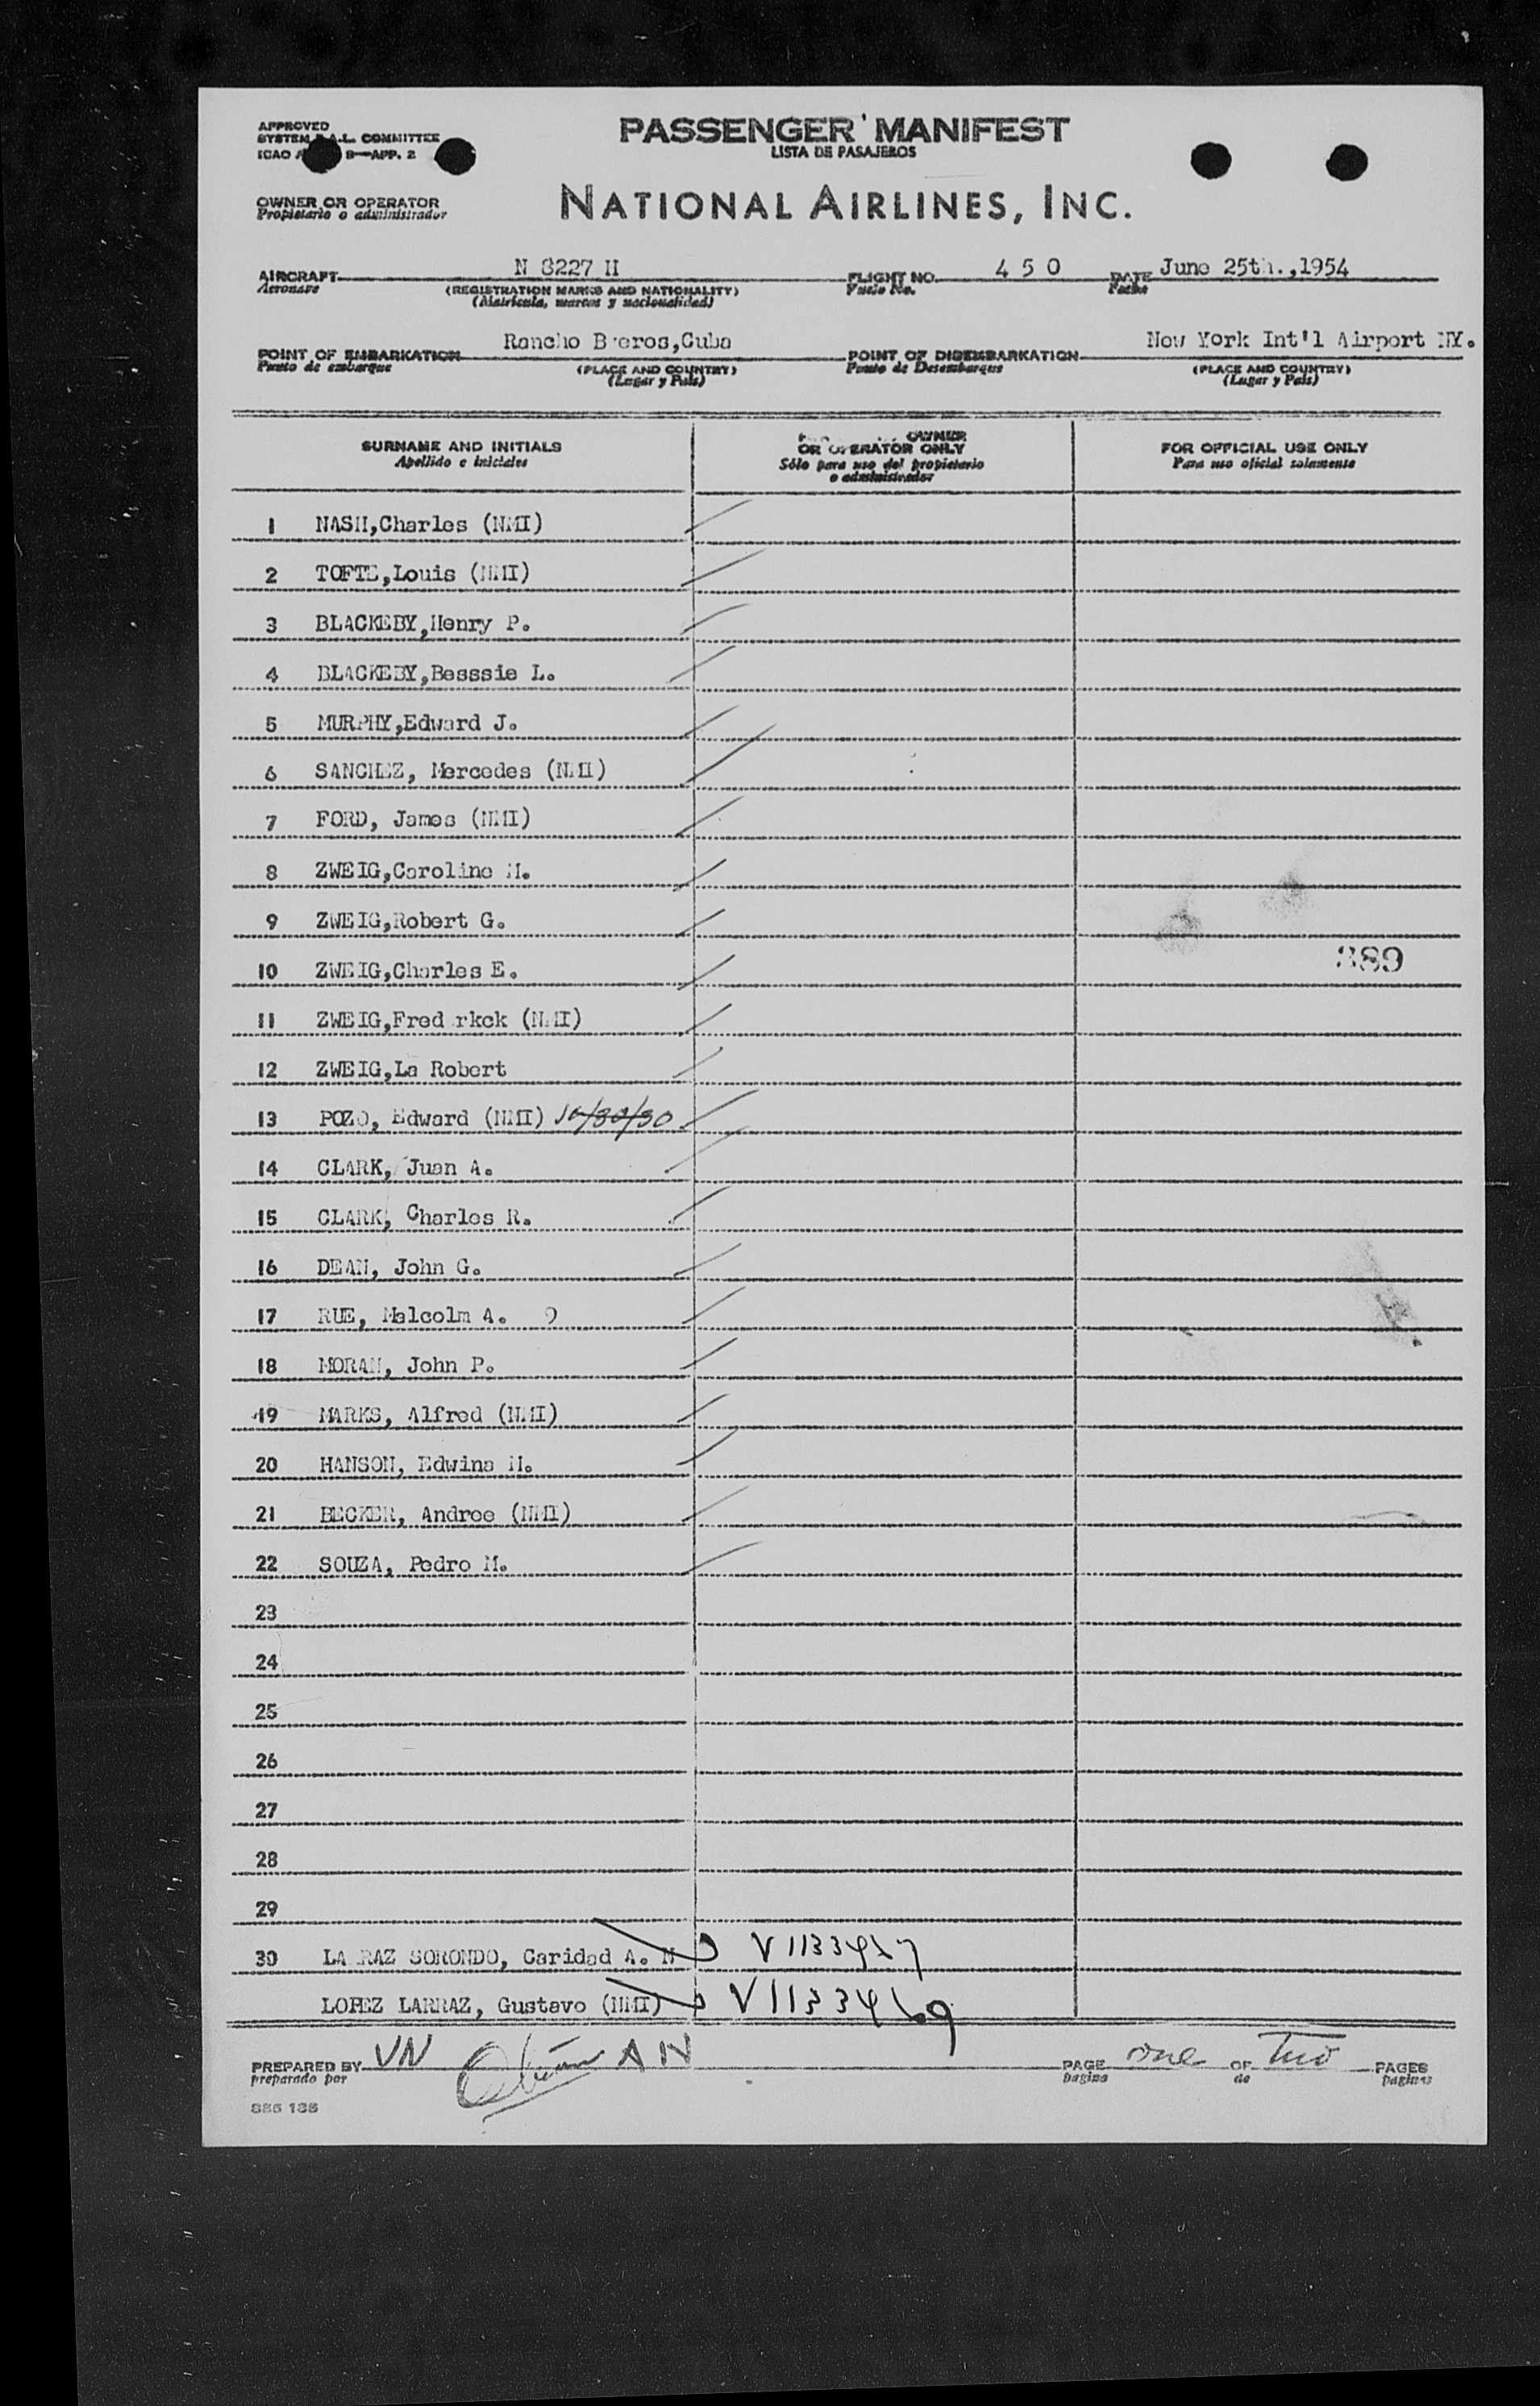 APPROVED
SYSTEM F.A.L. COMMITTEE
ICAO 9—APP. 2
PASSENGER MANIFEST
LISTA DE PASAJEROS
OWNER OR OPERATOR
Propietario o administrador
NATIONAL AIRLINES, INC.
AIRCRAFT N 8227 H FLIGHT NO. 4 5 0 DATE June 25th.,1954
Aeronave (REGISTRATION MARKS AND NATIONALITY) Vuelo No. Fecha
(Matrícula, marcas y nacionalidad)
POINT OF EMBARKATION Rancho Byeros,Cuba POINT OF DISEMBARKATION New York Int'l Airport NY.
Punto de embarque (PLACE AND COUNTRY) Punto de Desembarque (PLACE AND COUNTRY)
(Lugar y País) (Lugar y País)
SURNAME AND INITIALS OWNER OR OPERATOR ONLY FOR OFFICIAL USE ONLY
Apellido e iniciales Sólo para uso del propietario o administrador Para uso oficial solamente
1 NASH,Charles (NMI)
2 TOFTE,Louis (NMI)
3 BLACKEBY,Henry P.
4 BLACKEBY,Besssie L.
5 MURPHY,Edward J.
6 SANCHEZ, Mercedes (NMI)
7 FORD, James (NMI)
8 ZWEIG,Caroline M.
9 ZWEIG,Robert G.
10 ZWEIG,Charles E. 389
11 ZWEIG,Fred rkck (NMI)
12 ZWEIG,La Robert
13 POZO, Edward (NMI) 10/30/30
14 CLARK, Juan A.
15 CLARK, Charles R.
16 DEAN, John G.
17 RUE, Malcolm A. 9
18 MORAN, John P.
19 MARKS, Alfred (NMI)
20 HANSON, Edwina H.
21 BECKER, Andree (NMI)
22 SOUZA, Pedro M.
23
24
25
26
27
28
29
30 LA RAZ SORONDO, Caridad A. N V1133457
LOPEZ LARRAZ, Gustavo (NMI) V1133469
PREPARED BY VN AN PAGE one OF Two PAGES
preparado por pagina de paginas